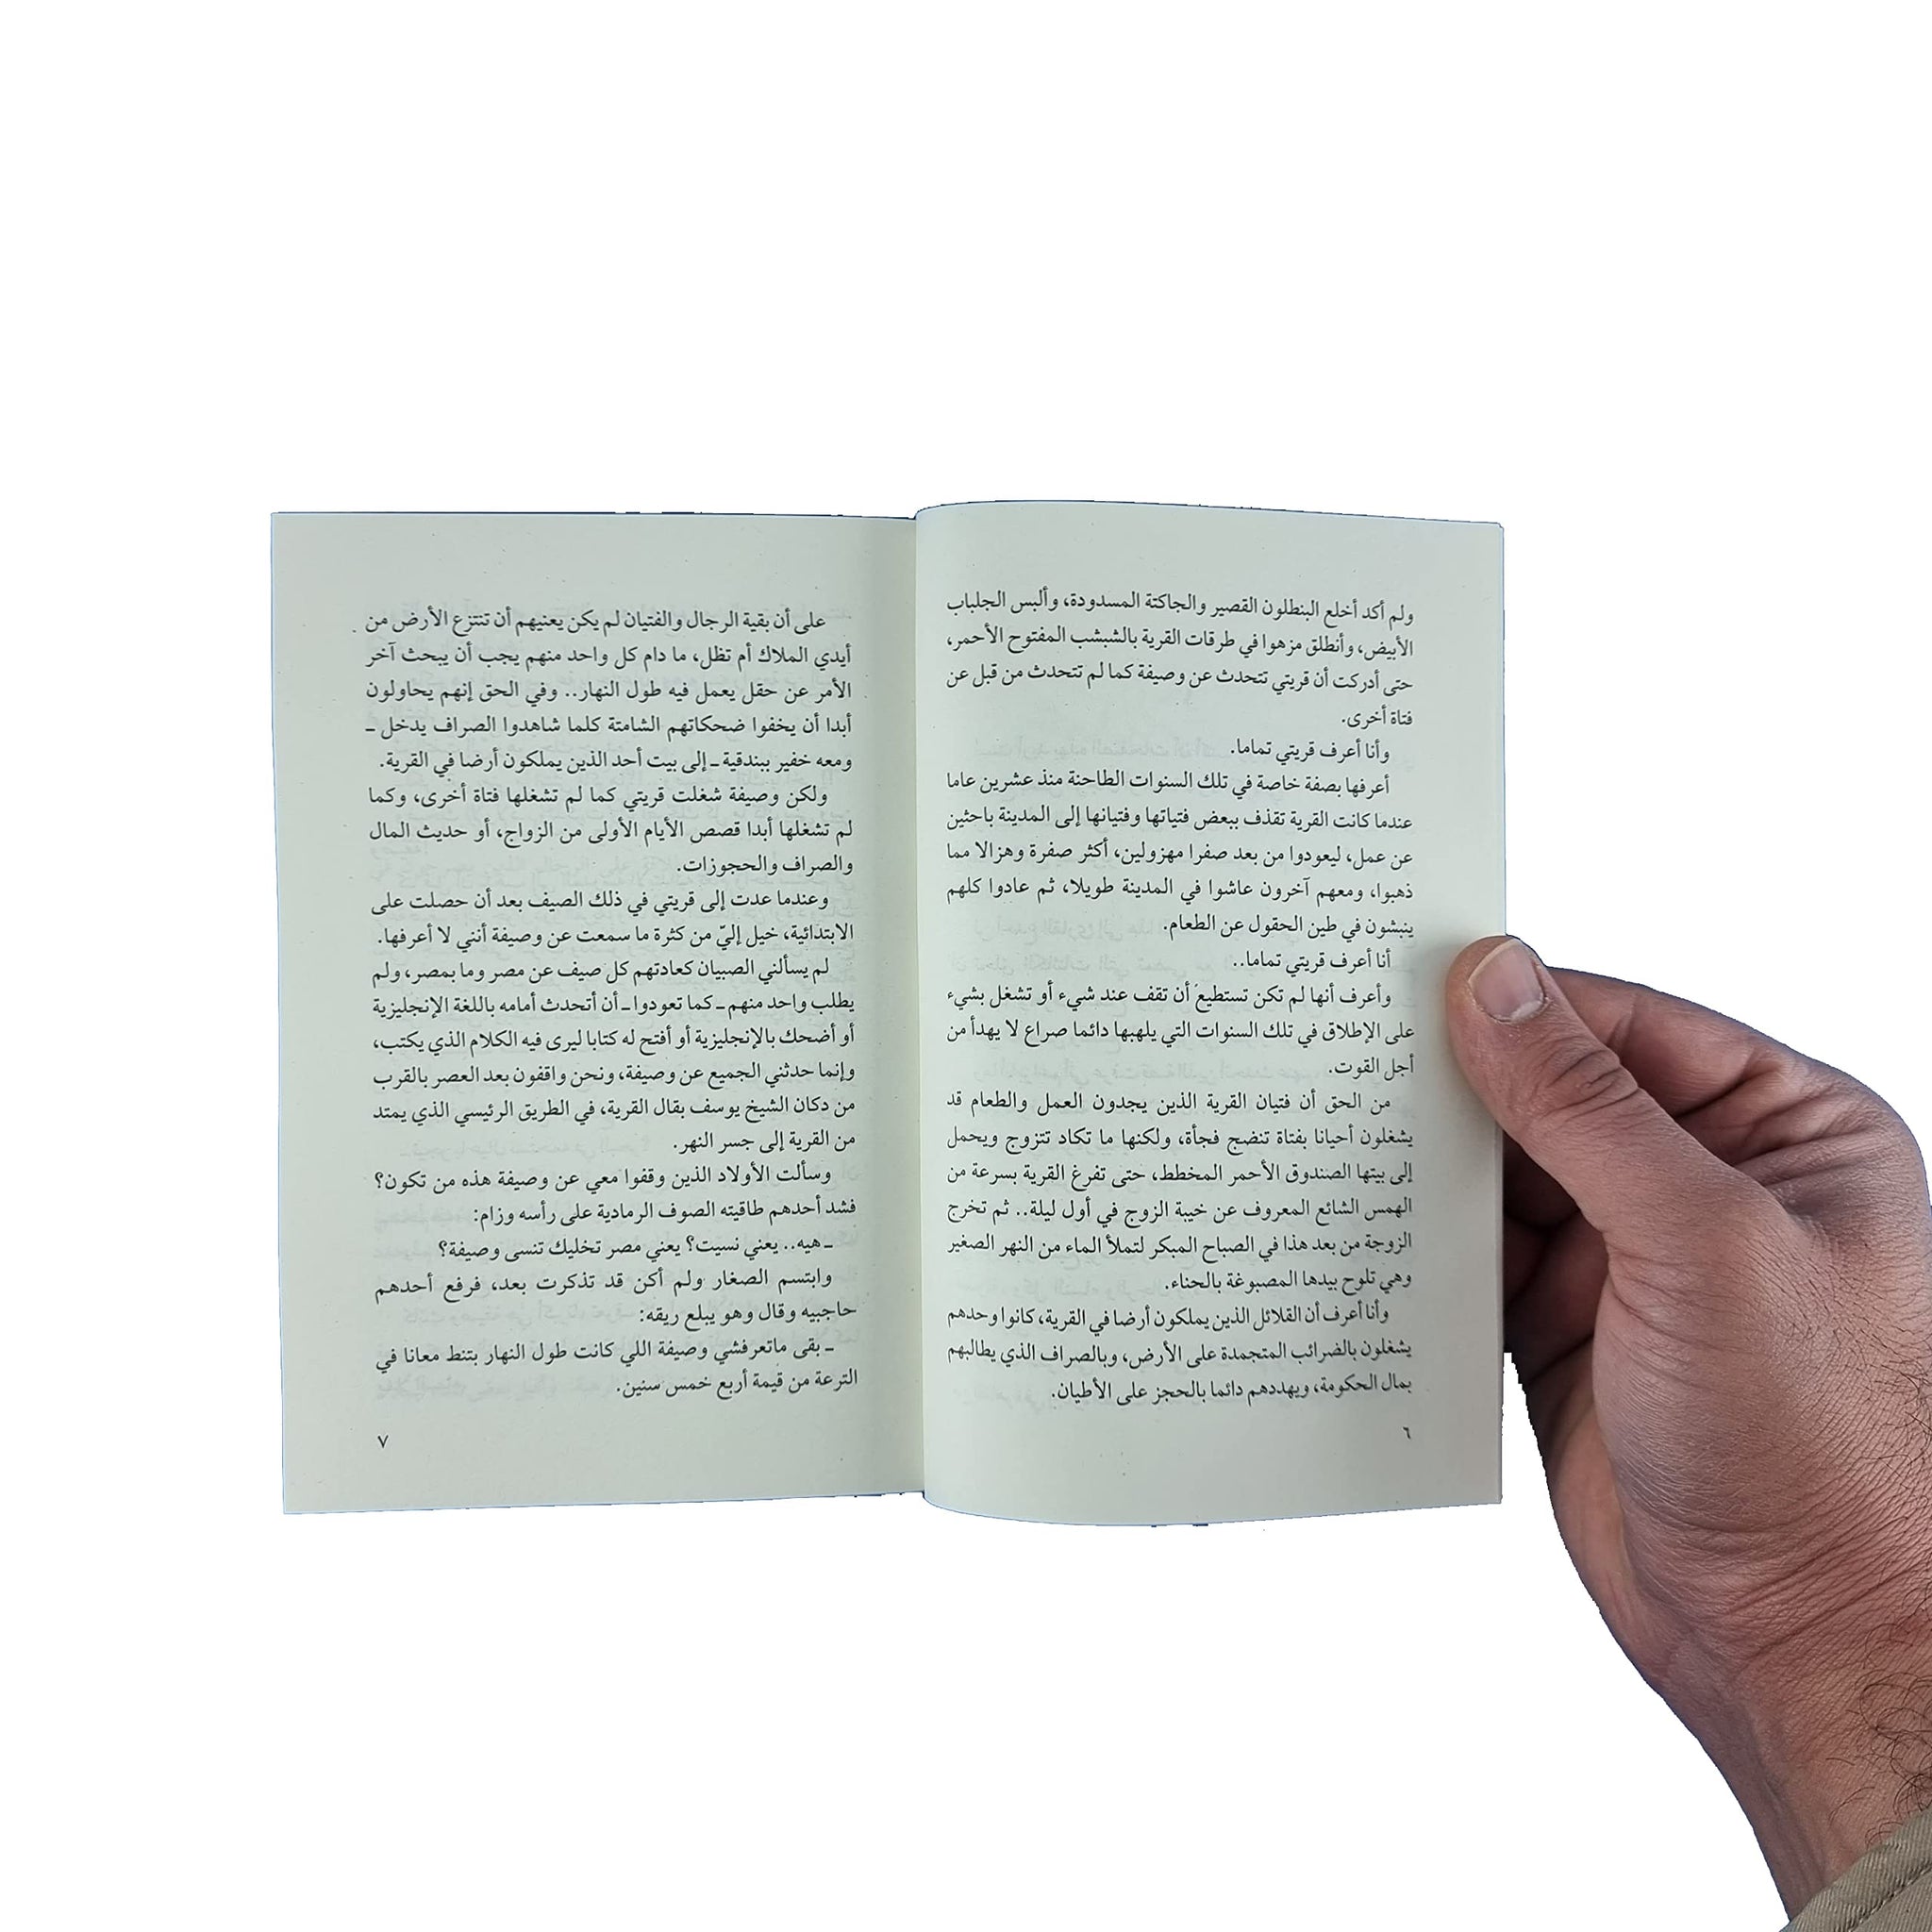 ولم أكد أخلع البنطلون القصير والجاكتة المسدودة، وألبس الجلباب
الأبيض، وأنطلق مزهوا في طرقات القرية بالشبشب المفتوح الأحمر،
حتى أدركت أن قريتي تتحدث عن وصيفة كما لم تتحدث من قبل عن
فتاة أخرى.
وأنا أعرف قريتي تماما.
أعرفها بصفة خاصة في تلك السنوات الطاحنة منذ عشرين عاما
عندما كانت القرية تقذف ببعض فتياتها وفتيانها إلى المدينة باحثين
عن عمل، ليعودوا من بعد صفرا مهزولين، أكثر صفرة وهزالا مما
ذهبوا، ومعهم آخرون عاشوا في المدينة طويلا، ثم عادوا كلهم
ينبشون في طين الحقول عن الطعام.
أنا أعرف قريتي تماما..
وأعرف أنها لم تكن تستطيع أن تقف عند شيء أو تشغل بشيء
على الإطلاق في تلك السنوات التي يلهبها دائما صراع لا يهدأ من
أجل القوت.
من الحق أن فتيان القرية الذين يجدون العمل والطعام قد
يشغلون أحيانا بفتاة تنضج فجأة، ولكنها ما تكاد تتزوج ويحمل
إلى بيتها الصندوق الأحمر المخطط، حتى تفرغ القرية بسرعة من
الهمس الشائع المعروف عن خيبة الزوج في أول ليلة.. ثم تخرج
الزوجة من بعد هذا في الصباح المبكر لتملأ الماء من النهر الصغير
وهي تلوح بيدها المصبوغة بالحناء.
وأنا أعرف أن القلائل الذين يملكون أرضا في القرية، كانوا وحدهم
يشغلون بالضرائب المتجمدة على الأرض، وبالصراف الذي يطالبهم
بمال الحكومة، ويهددهم دائما بالحجز على الأطيان.
٦
على أن بقية الرجال والفتيان لم يكن يعنيهم أن تنتزع الأرض من
أيدي الملاك أم تظل، ما دام كل واحد منهم يجب أن يبحث آخر
الأمر عن حقل يعمل فيه طول النهار.. وفي الحق إنهم يحاولون
أبدا أن يخفوا ضحكاتهم الشامتة كلما شاهدوا الصراف يدخل ـ
ومعه خفير ببندقية ـ إلى بيت أحد الذين يملكون أرضا في القرية.
ولكن وصيفة شغلت قريتي كما لم تشغلها فتاة أخرى، وكما
لم تشغلها أبدا قصص الأيام الأولى من الزواج، أو حديث المال
والصراف والحجوزات.
وعندما عدت إلى قريتي في ذلك الصيف بعد أن حصلت على
الابتدائية، خيل إليّ من كثرة ما سمعت عن وصيفة أنني لا أعرفها.
لم يسألني الصبيان كعادتهم كل صيف عن مصر وما بمصر، ولم
يطلب واحد منهم ـ كما تعودوا ـ أن أتحدث أمامه باللغة الإنجليزية
أو أضحك بالإنجليزية أو أفتح له كتابا ليرى فيه الكلام الذي يكتب،
وإنما حدثني الجميع عن وصيفة، ونحن واقفون بعد العصر بالقرب
من دكان الشيخ يوسف بقال القرية، في الطريق الرئيسي الذي يمتد
من القرية إلى جسر النهر.
وسألت الأولاد الذين وقفوا معي عن وصيفة هذه من تكون؟
فشد أحدهم طاقيته الصوف الرمادية على رأسه وزام:
ـ هيه.. يعني نسيت؟ يعني مصر تخليك تنسى وصيفة؟
وابتسم الصغار ولم أكن قد تذكرت بعد، فرفع أحدهم
حاجبيه وقال وهو يبلع ريقه:
ـ بقى ماتعرفشي وصيفة اللي كانت طول النهار بتنط معانا في
الترعة من قيمة أربع خمس سنين.
٧